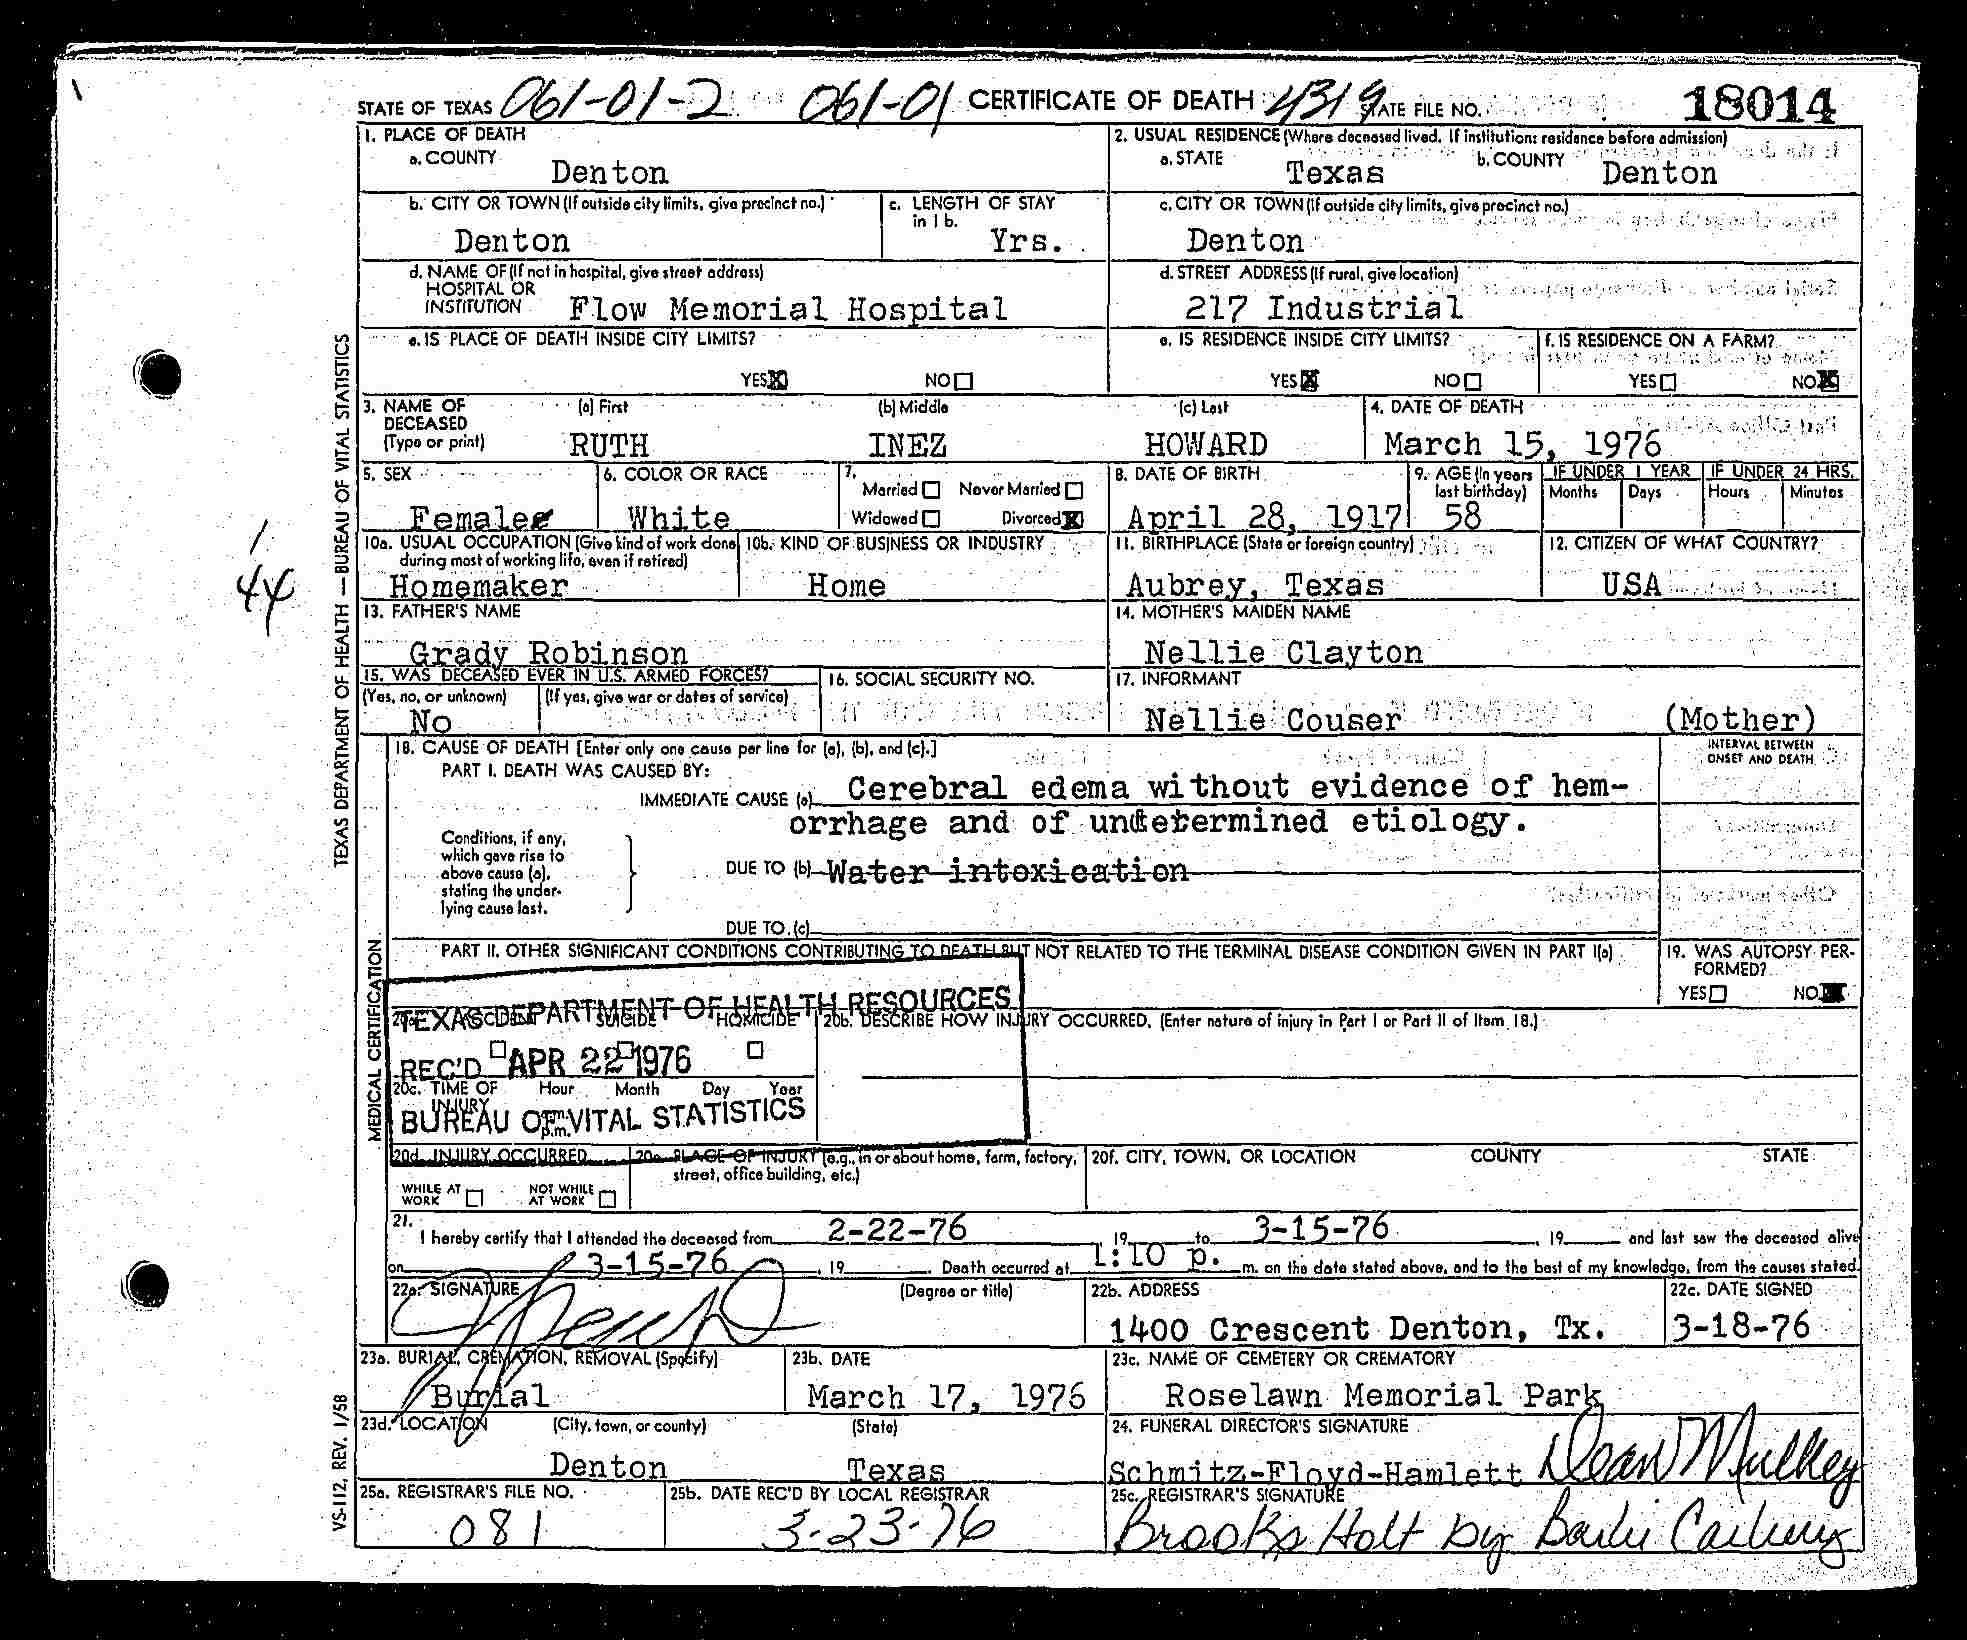 STATE OF TEXAS 061-01-2 061-01 CERTIFICATE OF DEATH 4319 STATE FILE NO. 18014
1. PLACE OF DEATH
a. COUNTY
Denton
2. USUAL RESIDENCE (Where deceased lived. If institution: residence before admission)
a. STATE Texas b. COUNTY Denton
b. CITY OR TOWN (If outside city limits, give precinct no.)
Denton
c. LENGTH OF STAY in 1 b.
Yrs.
c. CITY OR TOWN (If outside city limits, give precinct no.)
Denton
d. NAME OF (If not in hospital, give street address)
HOSPITAL OR
INSTITUTION Flow Memorial Hospital
d. STREET ADDRESS (If rural, give location)
217 Industrial
e. IS PLACE OF DEATH INSIDE CITY LIMITS?
YES NO
e. IS RESIDENCE INSIDE CITY LIMITS?
YES NO
f. IS RESIDENCE ON A FARM?
YES NO
3. NAME OF DECEASED (Type or print)
(a) First (b) Middle (c) Last
RUTH INEZ HOWARD
4. DATE OF DEATH
March 15, 1976
5. SEX
Female
6. COLOR OR RACE
White
7. Married Never Married
Widowed Divorced
8. DATE OF BIRTH
April 28, 1917
9. AGE (In years last birthday)
58
IF UNDER 1 YEAR
Months Days
IF UNDER 24 HRS.
Hours Minutes
10a. USUAL OCCUPATION (Give kind of work done during most of working life, even if retired)
Homemaker
10b. KIND OF BUSINESS OR INDUSTRY
Home
11. BIRTHPLACE (State or foreign country)
Aubrey, Texas
12. CITIZEN OF WHAT COUNTRY?
USA
13. FATHER'S NAME
Grady Robinson
14. MOTHER'S MAIDEN NAME
Nellie Clayton
15. WAS DECEASED EVER IN U.S. ARMED FORCES?
(Yes, no, or unknown) (If yes, give war or dates of service)
No
16. SOCIAL SECURITY NO.
17. INFORMANT
Nellie Couser (Mother)
18. CAUSE OF DEATH [Enter only one cause per line for (a), (b), and (c).]
PART I. DEATH WAS CAUSED BY:
INTERVAL BETWEEN ONSET AND DEATH
IMMEDIATE CAUSE (a) Cerebral edema without evidence of hem-
orrhage and of undetermined etiology.
Conditions, if any,
which gave rise to
above cause (a),
stating the under-
lying cause last.
DUE TO (b) Water intoxication
DUE TO (c)
PART II. OTHER SIGNIFICANT CONDITIONS CONTRIBUTING TO DEATH BUT NOT RELATED TO THE TERMINAL DISEASE CONDITION GIVEN IN PART I(a)
19. WAS AUTOPSY PER-
FORMED?
YES NO
TEXAS DEPARTMENT OF HEALTH RESOURCES
REC'D APR 22 1976
BUREAU OF VITAL STATISTICS
20a. ACCIDENT SUICIDE HOMICIDE
20b. DESCRIBE HOW INJURY OCCURRED. (Enter nature of injury in Part I or Part II of Item 18.)
20c. TIME OF INJURY Hour Month Day Year
p.m.
20d. INJURY OCCURRED
WHILE AT WORK NOT WHILE AT WORK
20e. PLACE OF INJURY (e.g., in or about home, farm, factory, street, office building, etc.)
20f. CITY, TOWN, OR LOCATION COUNTY STATE
21. I hereby certify that I attended the deceased from 2-22-76, 19 to 3-15-76, 19 and last saw the deceased alive
on 3-15-76, 19. Death occurred at 1:10 p. m. on the date stated above, and to the best of my knowledge, from the causes stated.
22a. SIGNATURE (Degree or title)
22b. ADDRESS
1400 Crescent Denton, Tx.
22c. DATE SIGNED
3-18-76
23a. BURIAL, CREMATION, REMOVAL (Specify)
Burial
23b. DATE
March 17, 1976
23c. NAME OF CEMETERY OR CREMATORY
Roselawn Memorial Park
23d. LOCATION (City, town, or county) (State)
Denton Texas
24. FUNERAL DIRECTOR'S SIGNATURE
Schmitz-Floyd-Hamlett Dean Mulkey
25a. REGISTRAR'S FILE NO.
081
25b. DATE REC'D BY LOCAL REGISTRAR
3-23-76
25c. REGISTRAR'S SIGNATURE
Brooks Holt by
TEXAS DEPARTMENT OF HEALTH — BUREAU OF VITAL STATISTICS
MEDICAL CERTIFICATION
VS-112, REV. 1/58
1
44